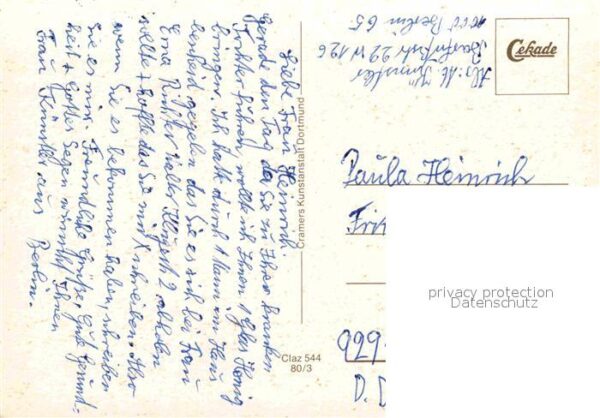 Liebe Frau Heinrich.
Gerade den Tag da Sie zu Ihren Kranken
Tochter fuhren, wollte ich Ihnen 1 Glas Honig
bringen. Ich hatte durch 1 Mann im Haus
bescheid gegeben das Sie es sich bei Frau
Erna Richter 2 abholen
sollte + hoffte das Sie mir schreiben. Also
wenn Sie es bekommen haben, schreiben
Sie es mir. Freundliche Grüße, Gute Gesund-
heit + Gottes Segen wünscht Ihnen
Frau Künstler aus Berlin.
Cramers Kunstanstalt Dortmund
Claz 544
80/3
Abs: M. Künstler
22 W 126
1000 Berlin 65
Cekade
Paula Heinrich
privacy protection
Datenschutz